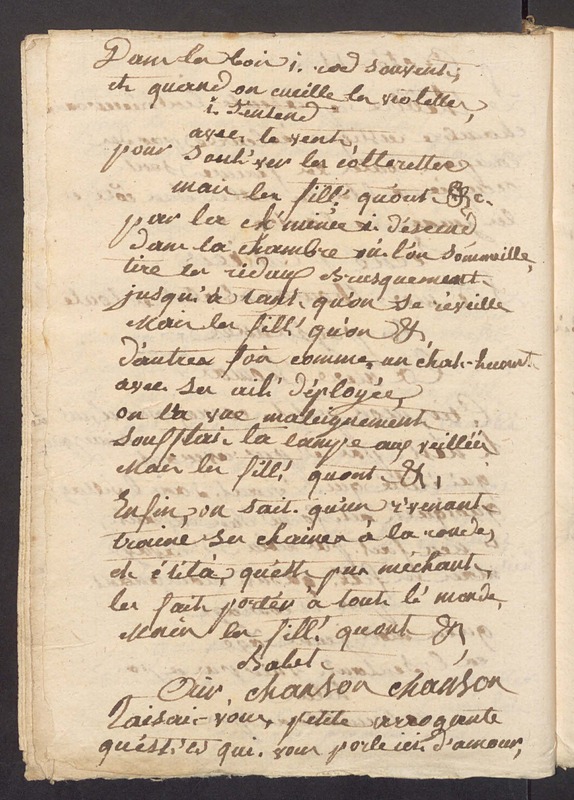 Dans les bois i. rod souvent;
et quand on cueille les violettes,
i. s'entend
avec le vent,
pour soul'ver les cotterettes
mais les fill' qu'ont &c.
par les ch'minée i. désend
dans la chambre où l'on sommeille,
tire les ridaux brusquement
jusqu'à tant qu'on se réveille
mais les fill' qu'on &,
d'autres fois comme un chat-huant
avec ses ail' déployées,
on l'a vue malignement
soufflair la lampe aux veillées
mais les fill' quont &,
Enfin, on sait qu'un r'venant
traine ses chaines à la ronde,
et s'ila, qu'ett' pus méchant,
les fait porter à tout le monde,
mais les fill' quont &,
Babet
Air, chanson chanson
Taisai-vous, petite arrogante
qu'ést'es qui. vous parle ici d'amour,